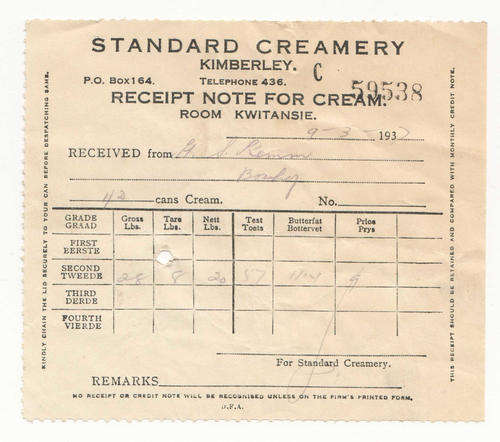 STANDARD CREAMERY
KIMBERLEY. C
P.O. Box 164. TELEPHONE 436. 59538
RECEIPT NOTE FOR CREAM.
ROOM KWITANSIE.
9-3- 1937
RECEIVED from
cans Cream. No.
GRADE GRAAD Gross Lbs. Tare Lbs. Nett Lbs. Test Toets Butterfat Bottervet Price Prys
FIRST EERSTE
SECOND TWEEDE 28 8 20 57 11.4 9
THIRD DERDE
FOURTH VIERDE
For Standard Creamery.
REMARKS
NO RECEIPT OR CREDIT NOTE WILL BE RECOGNISED UNLESS ON THE FIRM'S PRINTED FORM.
D.F.A.
KINDLY CHAIN THE LID SECURELY TO YOUR CAN BEFORE DESPATCHING SAME.
THIS RECEIPT SHOULD BE RETAINED AND COMPARED WITH MONTHLY CREDIT NOTE.